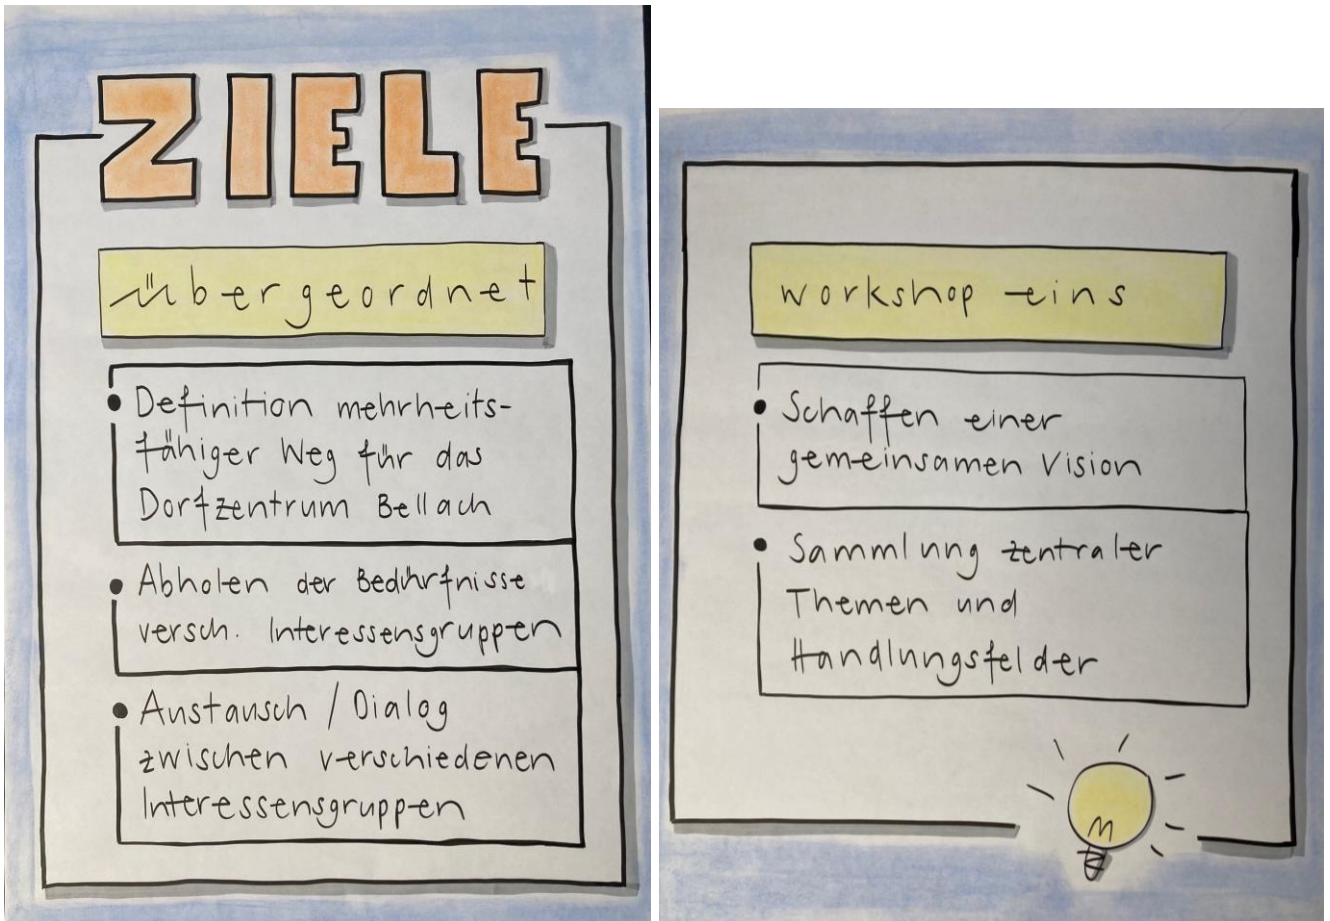 ZIELE
übergeordnet
• Definition mehrheits-
fähiger Weg für das
Dorfzentrum Bellach
• Abholen der Bedürfnisse
versch. Interessensgruppen
• Austausch / Dialog
zwischen verschiedenen
Interessensgruppen
workshop eins
• Schaffen einer
gemeinsamen Vision
• Sammlung zentraler
Themen und
Handlungsfelder